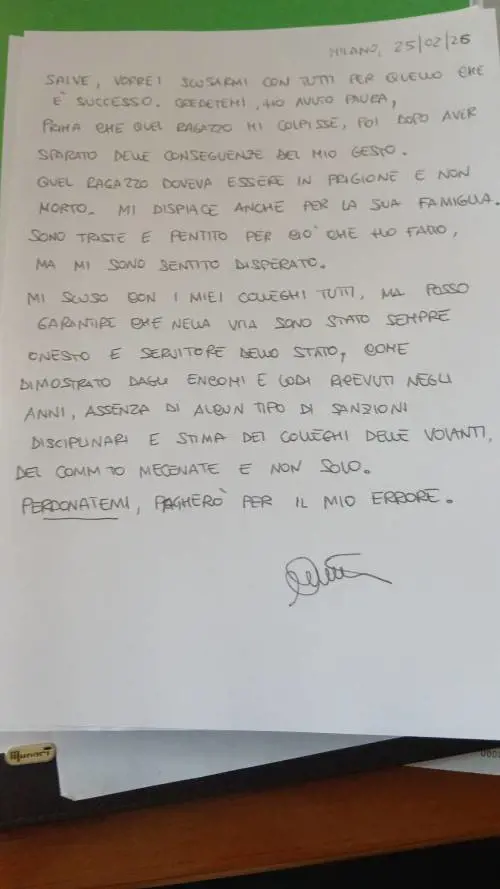 MILANO, 25/02/26
SALVE, VORREI SCUSARMI CON TUTTI PER QUELLO CHE
E' SUCCESSO. CREDETEMI, HO AVUTO PAURA,
PRIMA CHE QUEL RAGAZZO MI COLPISSE, POI DOPO AVER
SPARATO DELLE CONSEGUENZE DEL MIO GESTO.
QUEL RAGAZZO DOVEVA ESSERE IN PRIGIONE E NON
MORTO. MI DISPIACE ANCHE PER LA SUA FAMIGLIA.
SONO TRISTE E PENTITO PER CIO' CHE HO FATTO,
MA MI SONO SENTITO DISPERATO.
MI SCUSO CON I MIEI COLLEGHI TUTTI, MA POSSO
GARANTIRE CHE NELLA VITA SONO STATO SEMPRE
ONESTO E SERVITORE DELLO STATO, COME
DIMOSTRATO DAGLI ENCOMI E LODI RICEVUTI NEGLI
ANNI, ASSENZA DI ALCUN TIPO DI SANZIONI
DISCIPLINARI E STIMA DEI COLLEGHI DELLE VOLANTI,
DEL COMM.TO MECENATE E NON SOLO.
PERDONATEMI, PAGHERÒ PER IL MIO ERRORE.
Munari